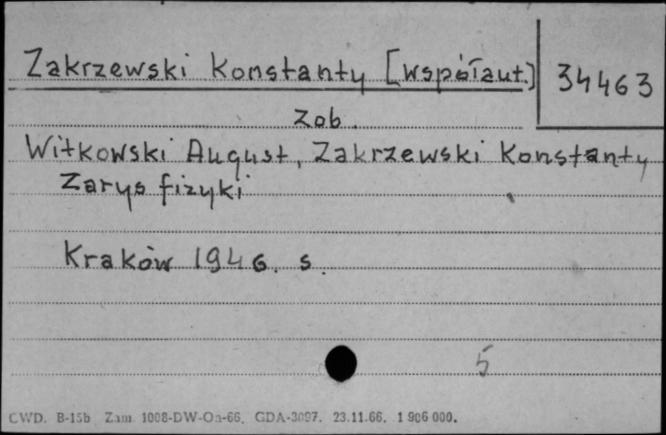 Zakrzewski Konstanty [współaut.] 34463
zob.
Witkowski August, Zakrzewski Konstanty
Zarys fizyki
Kraków 1946. s.
5
CWD. B-15b Zam. 1008-DW-Oa-66. GDA-3097. 23.11.66. 1 906 000.